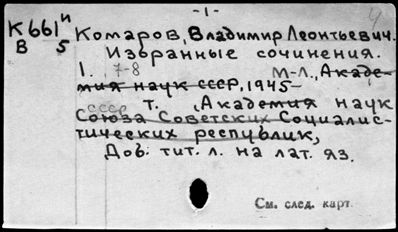 -1-
4
К661и
В 5
Комаров, Владимир Леонтьевич.
Избранные сочинения.
1. 7-8 М-Л., Акаде-
мия наук СССР, 1945-
СССР т. , Академия наук
Союза Советских Социалис-
тических республик,
Доб. тит. л. на лат. яз.
См. след. карт.